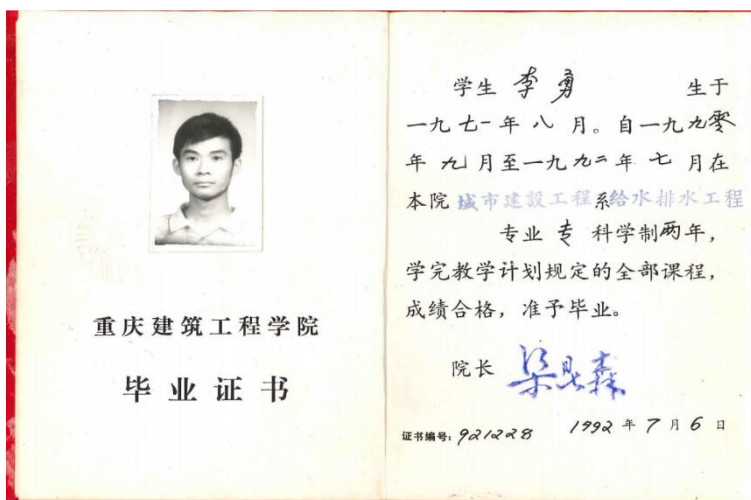 重庆建筑工程学院
毕业证书
学生 李勇 生于
一九七一年八月。自一九九零
年九月至一九九二年七月在
本院城市建設工程系给水排水工程
专业专科学制两年，
学完教学计划规定的全部课程，
成绩合格，准予毕业。
院长 梁鼎森
证书编号：921228 1992年7月6日